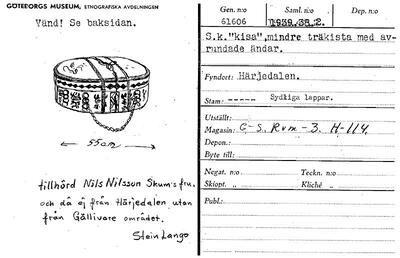 GÖTEBORGS MUSEUM, ETNOGRAFISKA AVDELNINGEN
Vänd! Se baksidan.
55cm
tillhörd Nils Nilsson Skum:s fru.
och då ej från Härjedalen, utan
från Gällivare området.
Stein Lango
Gen. n:o
61606
Saml. n:o
1939.38.2.
Dep. n:o
S.k."kisa",mindre träkista med av-
rundade ändar.
Fyndort: Härjedalen.
Stam: ----- Sydliga lappar.
Utställt:
Magasin: C-S. Rum-3. H-114.
Depon.:
Byte till:
Negat. n:o
Teckn. n:o
Skiopt. „
Kliché „
Publ.: